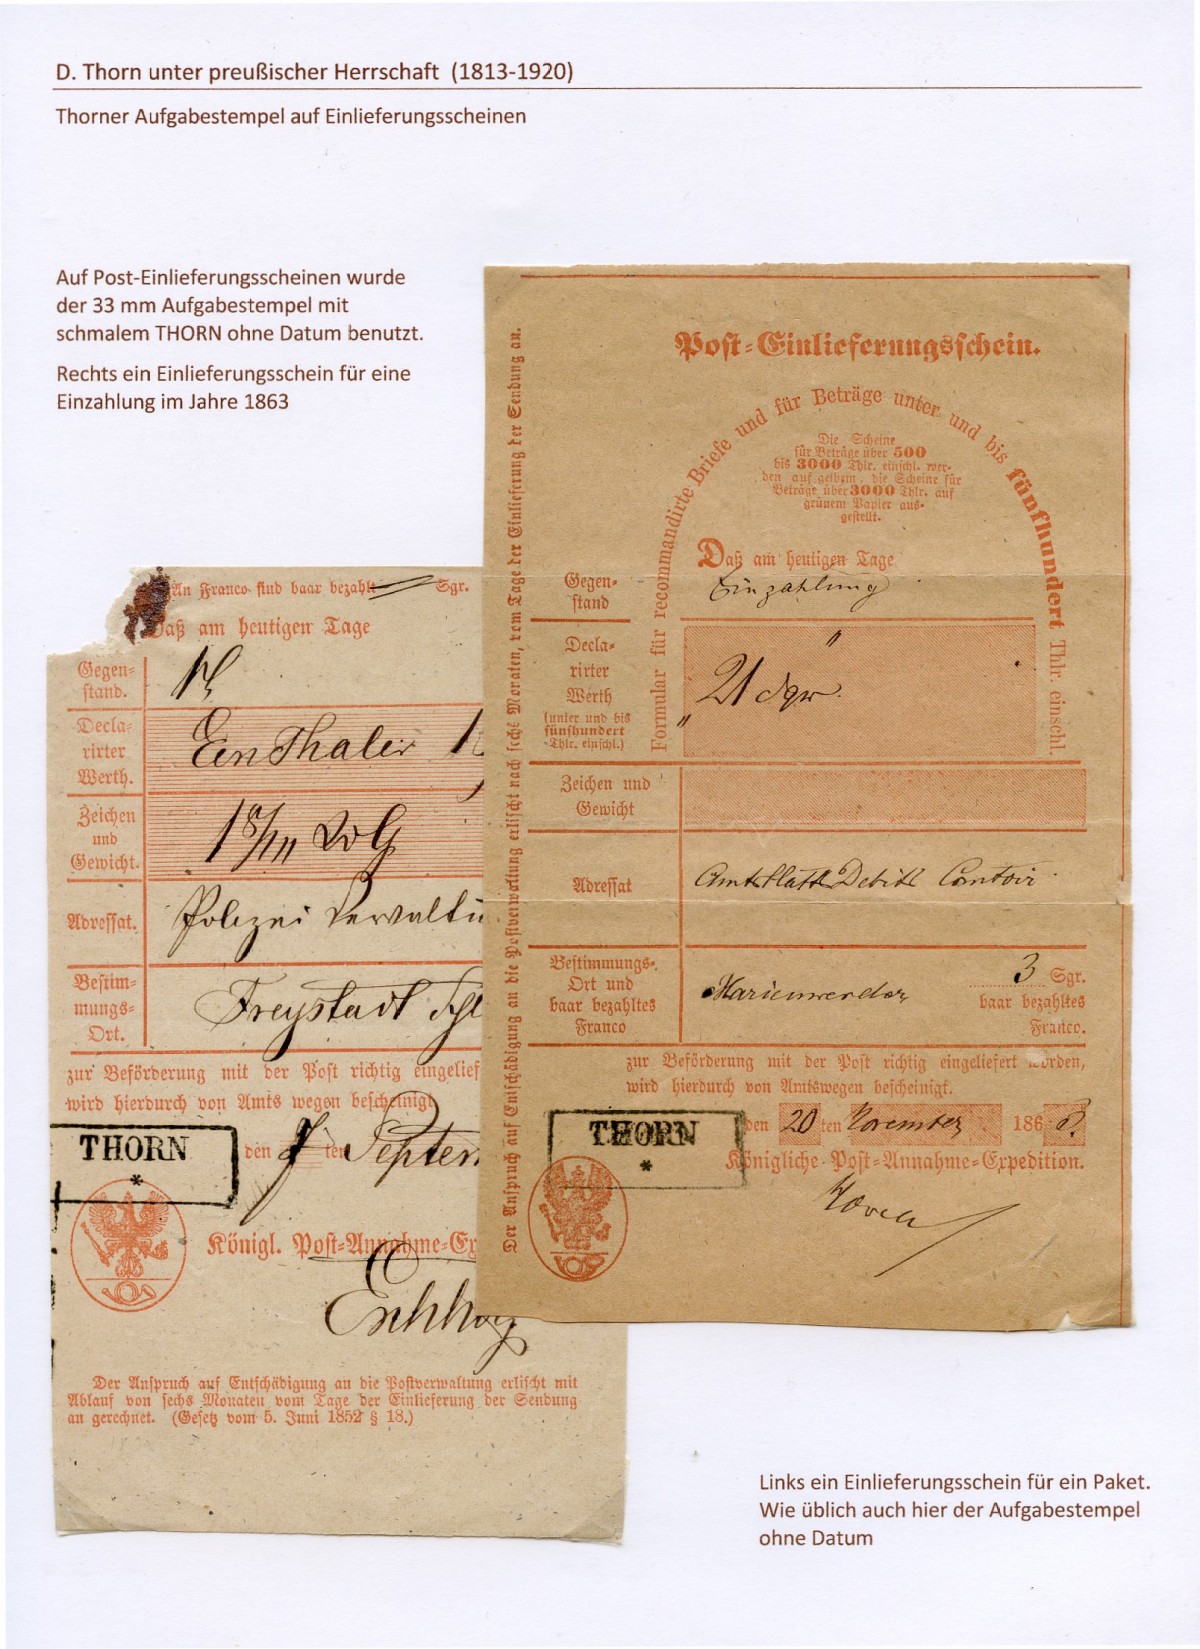 D. Thorn unter preußischer Herrschaft (1813-1920)
Thorner Aufgabestempel auf Einlieferungsscheinen
Auf Post-Einlieferungsscheinen wurde
der 33 mm Aufgabestempel mit
schmalem THORN ohne Datum benutzt.
Rechts ein Einlieferungsschein für eine
Einzahlung im Jahre 1863
An Franco sind baar bezahlt Sgr.
Daß am heutigen Tage
Gegen-
stand.
Decla-
rirter
Werth.
Ein Thaler
Zeichen
und
Gewicht.
Adressat.
Polizei Verwaltu
Bestim-
mungs-
Ort.
Freystadt Schl
zur Beförderung mit der Post richtig eingelief
wird hierdurch von Amts wegen bescheinigt
THORN
*
den ten Septem
Königl. Post-Annahme-Ex
Der Anspruch auf Entschädigung an die Postverwaltung erlischt mit
Ablauf von sechs Monaten vom Tage der Einlieferung der Sendung
an gerechnet. (Gesetz vom 5. Juni 1852 § 18.)
Der Anspruch auf Entschädigung an die Postverwaltung erlischt nach sechs Monaten, vom Tage der Einlieferung der Sendung an.
Post-Einlieferungsschein.
Formular für recommandirte Briefe und für Beträge unter und bis fünfhundert Thlr. einschl.
Die Scheine
für Beträge über 500
bis 3000 Thlr. einschl. wer-
den auf gelbem, die Scheine für
Beträge über 3000 Thlr. auf
grünem Papier aus-
gestellt.
Daß am heutigen Tage
Gegen-
stand
Einzahlung
Decla-
rirter
Werth
(unter und bis
fünfhundert
Thlr. einschl.)
" 21 Sgr. "
Zeichen und
Gewicht
Adressat
Amtsblatts Debits Comtoir
Bestimmungs-
Ort und
baar bezahltes
Franco
Marienwerder
3 Sgr.
baar bezahltes
Franco.
zur Beförderung mit der Post richtig eingeliefert worden,
wird hierdurch von Amtswegen bescheinigt.
THORN
*
den 20 ten November 1863.
Königliche Post-Annahme-Expedition.
Links ein Einlieferungsschein für ein Paket.
Wie üblich auch hier der Aufgabestempel
ohne Datum